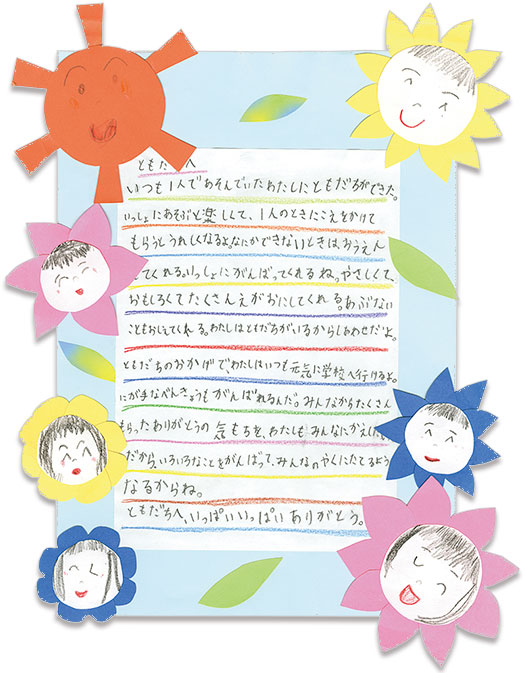 ともだちへ
いつも1人であそんでいたわたしにともだちができた。
いっしょにあそぶと楽しくて、1人のときにこえをかけて
もらうとうれしくなるよ。なにかできないときは、おうえん
してくれる。いっしょにがんばってくれるね。やさしくて、
おもしろくてたくさんえがおにしてくれる。あぶない
こともおしえてくれる。わたしはともだちがいるからしあわせだよ。
ともだちのおかげでわたしはいつも元気に学校へ行けるよ。
にが手なべんきょうもがんばれるんだ。みんなからたくさん
もらったありがとうの気もちを、わたしも、みんなにかえしたい
だから、いろいろなことをがんばって、みんなのやくにたてるよう
なるからね。
ともだちへ、いっぱいいっぱいありがとう。